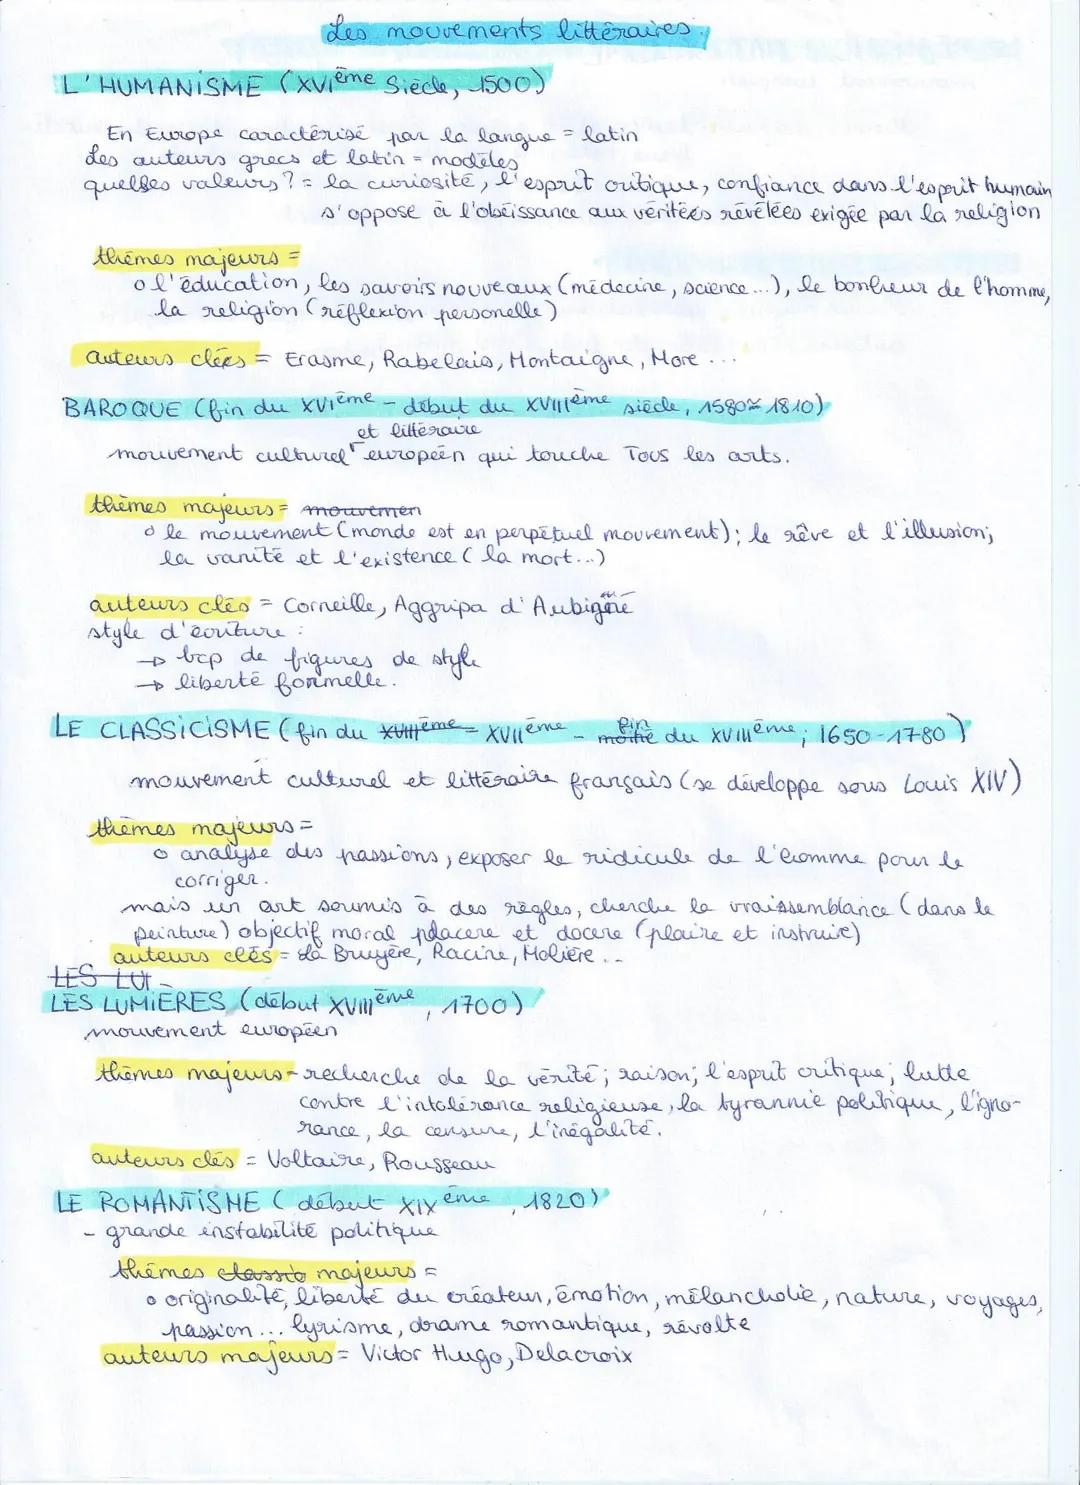 Les mouvements littéraires.
L'HUMANISME (XVIème Siècle, 1500)
En Europe caractérisé par la langue = latin
Les auteurs grecs et latin = modèles
quelles valeurs? = la curiosité, l'esprit critique, confiance dans l'esprit humain
s'oppose à l'obéissance aux véritées révélées exigée par la religion
thèmes majeurs =
o l'éducation, les savoirs nouveaux (médecine, science...), le bonheur de l'homme,
la religion (réflexion personelle)
auteurs clées = Erasme, Rabelais, Montaigne, More ...
BAROQUE (fin du XVIème - début du XVIIIème siècle, 1580≈ 1810)
et littéraire
mouvement culturel européen qui touche TOUS les arts.
thèmes majeurs = mouvemen
o le mouvement (monde est en perpétuel mouvement); le rêve et l'illusion;
la vanité et l'existence (la mort...)
auteurs clés = Corneille, Aggripa d'Aubigné
style d'écriture :
→ bcp de figures de style
→ liberté formelle.
LE CLASSICISME (fin du XVIIIème - XVIIème - moitié fin du XVIIIème; 1650-1780)
mouvement culturel et littéraire français (se développe sous Louis XIV)
thèmes majeurs =
o analyse des passions, exposer le ridicule de l'homme pour le
corriger.
mais un art soumis à des règles, cherche la vraissemblance (dans le
peinture) objectif moral placere et docere (plaire et instruire)
auteurs clés = La Bruyère, Racine, Molière...
LES LUI
LES LUMIÈRES (début XVIIIème, 1700)
mouvement européen
thèmes majeurs - recherche de la vérité; raison; l'esprit critique; lutte
contre l'intolérance religieuse, la tyrannie politique, l'igno-
rance, la censure, l'inégalité.
auteurs clés = Voltaire, Rousseau
LE ROMANTISME (début XIXème, 1820)
- grande instabilité politique
thèmes classic majeurs =
o originalité, liberté du créateur, émotion, mélancholie, nature, voyages,
passion... lyrisme, drame romantique, révolte
auteurs majeurs = Victor Hugo, Delacroix